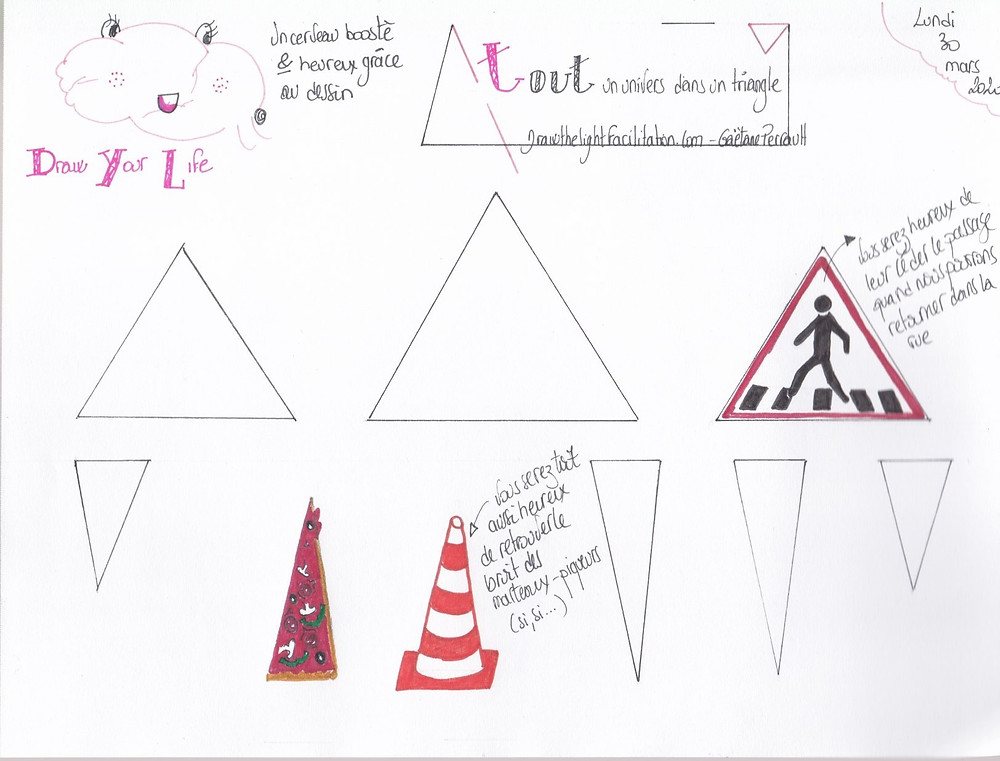 Un cerveau boosté
& heureux grâce
au dessin
Draw Your Life
tout un univers dans un triangle
Drawthelightfacilitation.com - Gaëtane Perrault
Lundi
30
mars
2020
Vous serez heureux de
leur céder le passage
quand nous pourrons
retourner dans la
rue
Vous serez tout
aussi heureux
de retrouver le
bruit des
marteaux-piqueurs
(si, si...)